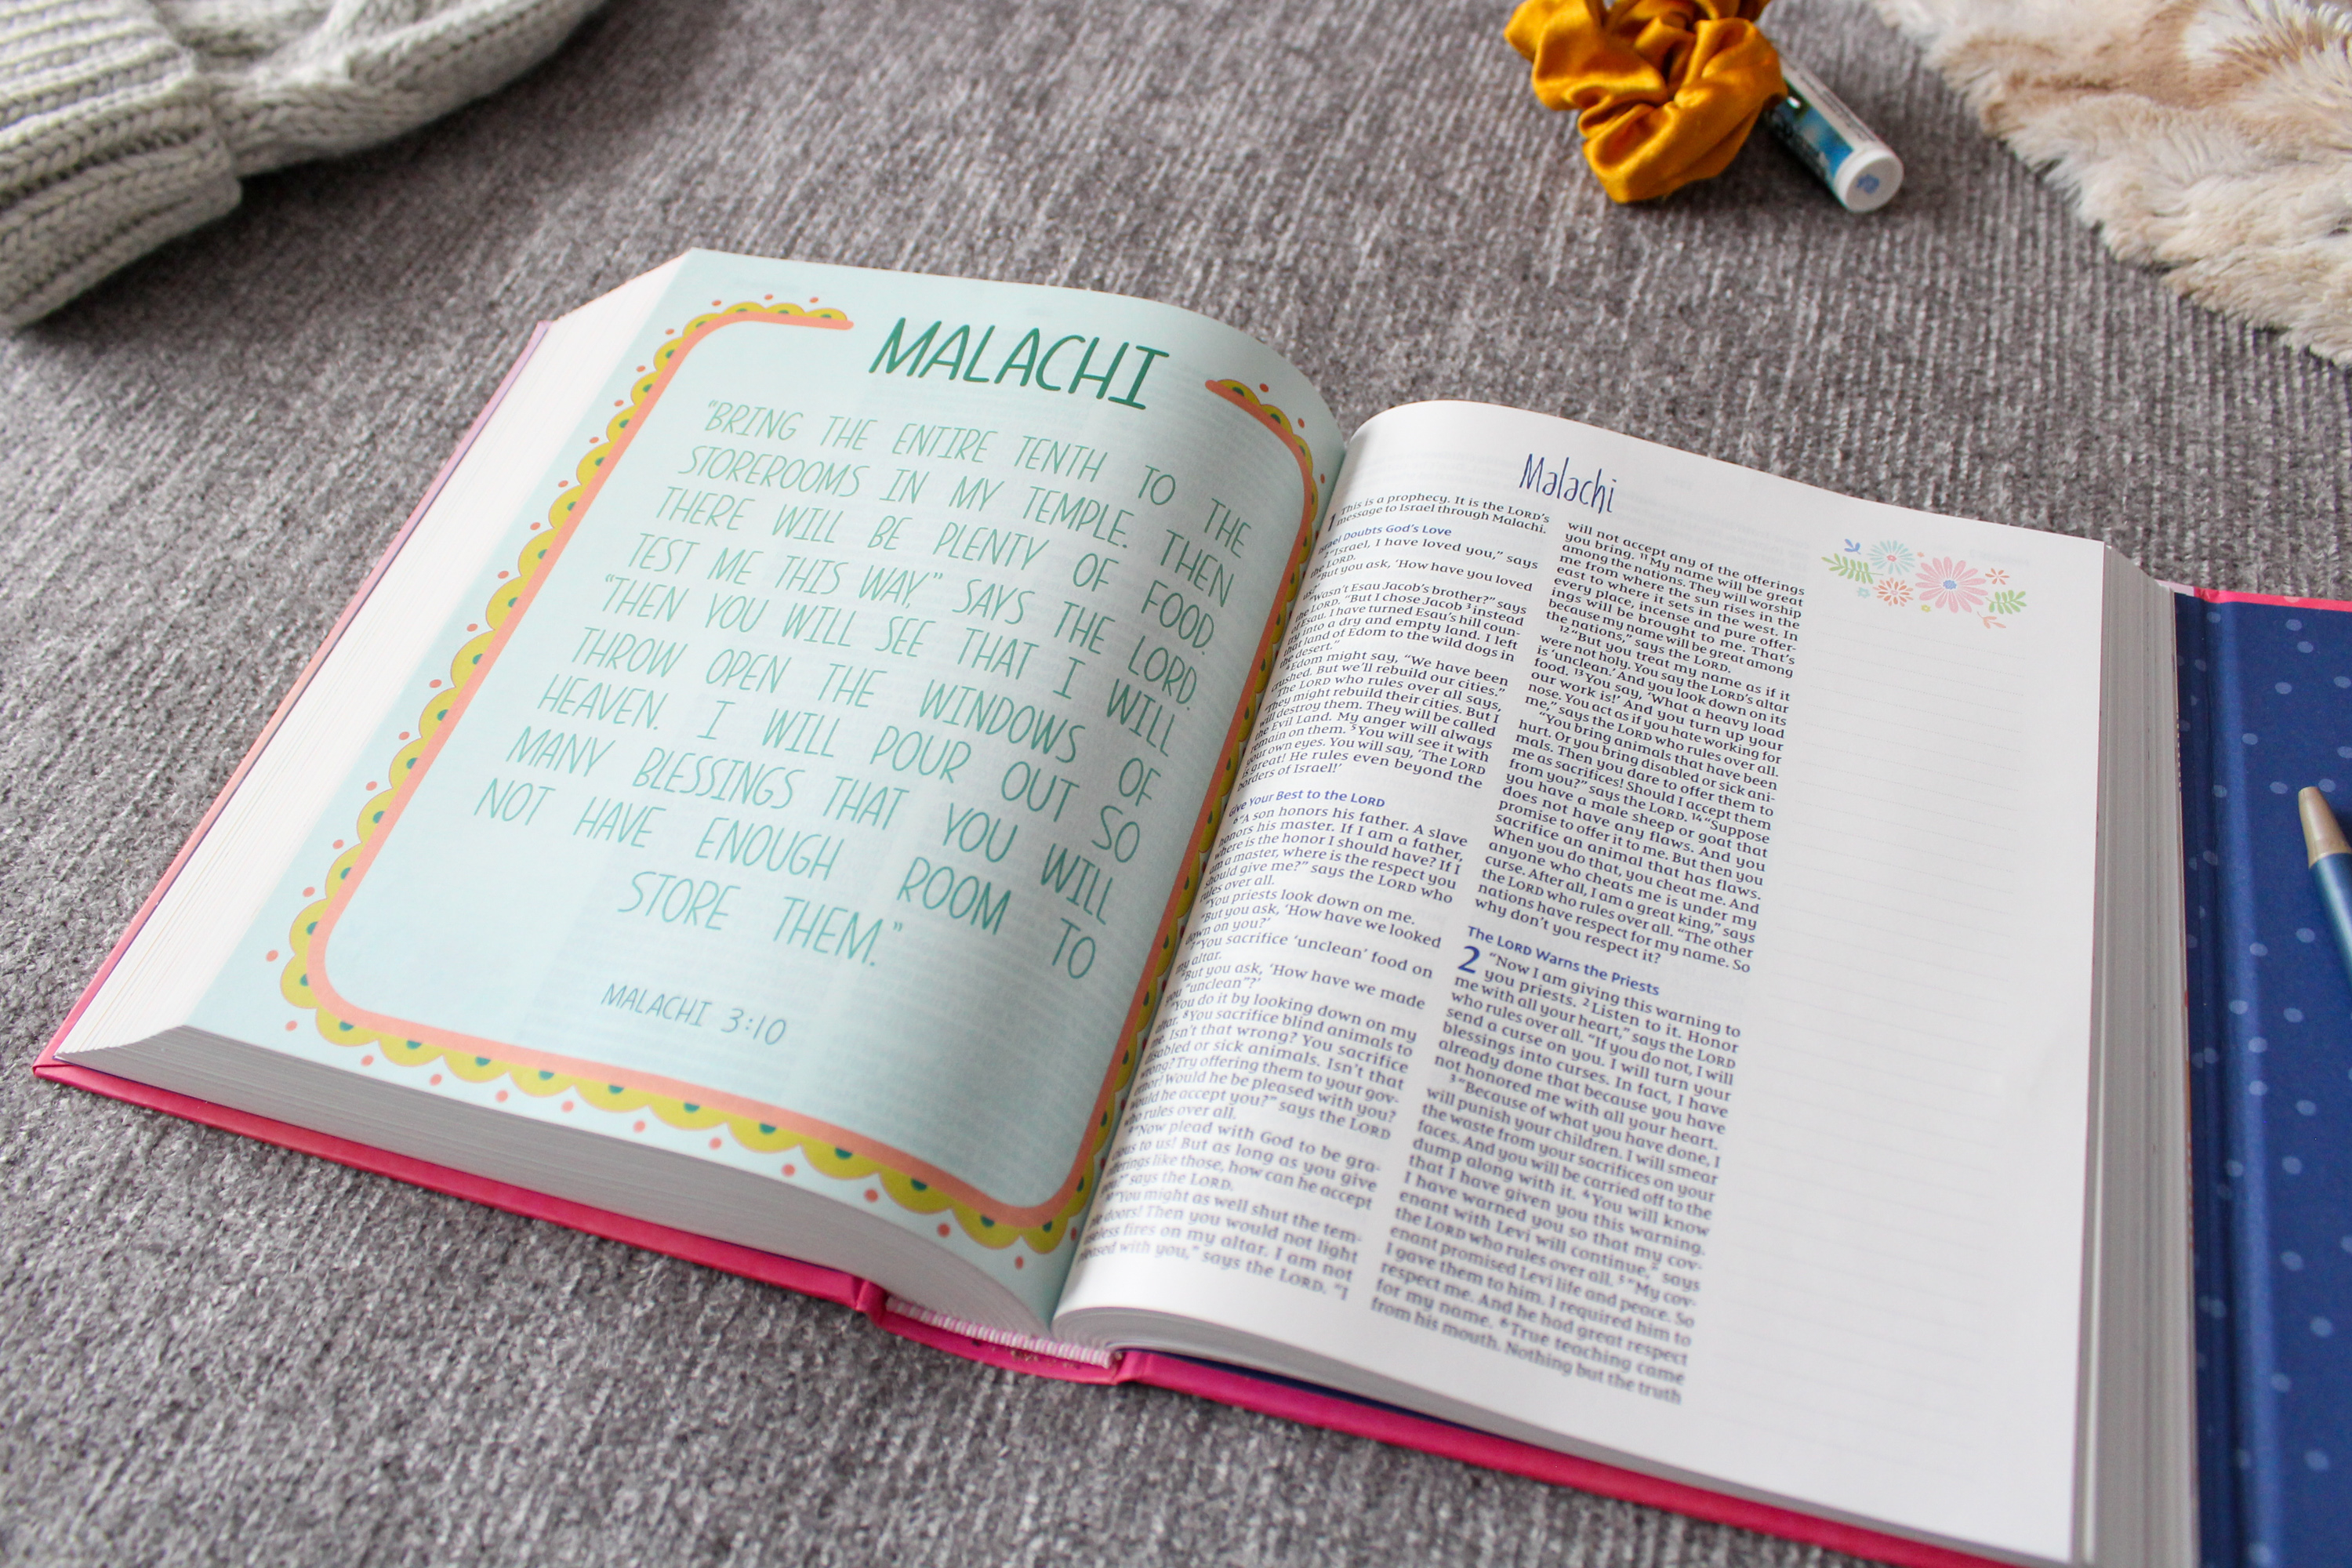 MALACHI
"BRING THE ENTIRE TENTH TO THE
STOREROOMS IN MY TEMPLE. THEN
THERE WILL BE PLENTY OF FOOD.
TEST ME THIS WAY," SAYS THE LORD.
"THEN YOU WILL SEE THAT I WILL
THROW OPEN THE WINDOWS OF
HEAVEN. I WILL POUR OUT SO
MANY BLESSINGS THAT YOU WILL
NOT HAVE ENOUGH ROOM TO
STORE THEM."
MALACHI 3:10
Malachi
1 This is a prophecy. It is the LORD's
message to Israel through Malachi.
Doubts God's Love
2 "Israel, I have loved you," says
the LORD.
"But you ask, 'How have you loved
us?'
"Wasn't Esau Jacob's brother?" says
the LORD. "But I chose Jacob 3 instead
of Esau. I have turned Esau's hill coun-
into a dry and empty land. I left
that land of Edom to the wild dogs in
the desert."
Edom might say, "We have been
crushed. But we'll rebuild our cities."
The LORD who rules over all says,
"They might rebuild their cities. But I
will destroy them. They will be called
the Evil Land. My anger will always
remain on them. 5 You will see it with
your own eyes. You will say, 'The LORD
is great! He rules even beyond the
borders of Israel!'
Give Your Best to the LORD
6 "A son honors his father. A slave
honors his master. If I am a father,
where is the honor I should have? If I
am a master, where is the respect you
should give me?" says the LORD who
rules over all.
"You priests look down on me.
"But you ask, 'How have we looked
down on you?'
7 "You sacrifice 'unclean' food on
my altar.
"But you ask, 'How have we made
you "unclean"?'
"You do it by looking down on my
altar. 8 You sacrifice blind animals to
me. Isn't that wrong? You sacrifice
disabled or sick animals. Isn't that
wrong? Try offering them to your gov-
ernor! Would he be pleased with you?
Would he accept you?" says the LORD
who rules over all.
9 "Now plead with God to be gra-
cious to us! But as long as you give
offerings like those, how can he accept
you?" says the LORD.
"You might as well shut the tem-
doors! Then you would not light
useless fires on my altar. I am not
pleased with you," says the LORD. "I
will not accept any of the offerings
you bring. 11 My name will be great
among the nations. They will worship
me from where the sun rises in the
east to where it sets in the west. In
every place, incense and pure offer-
ings will be brought to me. That's
because my name will be great among
the nations," says the LORD.
12 "But you treat my name as if it
were not holy. You say the LORD's altar
is 'unclean.' And you look down on its
food. 13 You say, 'What a heavy load
our work is!' And you turn up your
nose. You act as if you hate working for
me," says the LORD who rules over all.
"You bring animals that have been
hurt. Or you bring disabled or sick ani-
mals. Then you dare to offer them to
me as sacrifices! Should I accept them
from you?" says the LORD. 14 "Suppose
you have a male sheep or goat that
does not have any flaws. And you
promise to offer it to me. But then you
sacrifice an animal that has flaws.
When you do that, you cheat me. And
anyone who cheats me is under my
curse. After all, I am a great king," says
the LORD who rules over all. "The other
nations have respect for my name. So
why don't you respect it?
The LORD Warns the Priests
2 "Now I am giving this warning to
you priests. 2 Listen to it. Honor
me with all your heart," says the LORD
who rules over all. "If you do not, I will
send a curse on you. I will turn your
blessings into curses. In fact, I have
already done that because you have
not honored me with all your heart.
3 "Because of what you have done, I
will punish your children. I will smear
the waste from your sacrifices on your
faces. And you will be carried off to the
dump along with it. 4 You will know
that I have given you this warning.
I have warned you so that my cov-
enant with Levi will continue," says
the LORD who rules over all. 5 "My cov-
enant promised Levi life and peace. So
I gave them to him. I required him to
respect me. And he had great respect
for my name. 6 True teaching came
from his mouth. Nothing but the truth